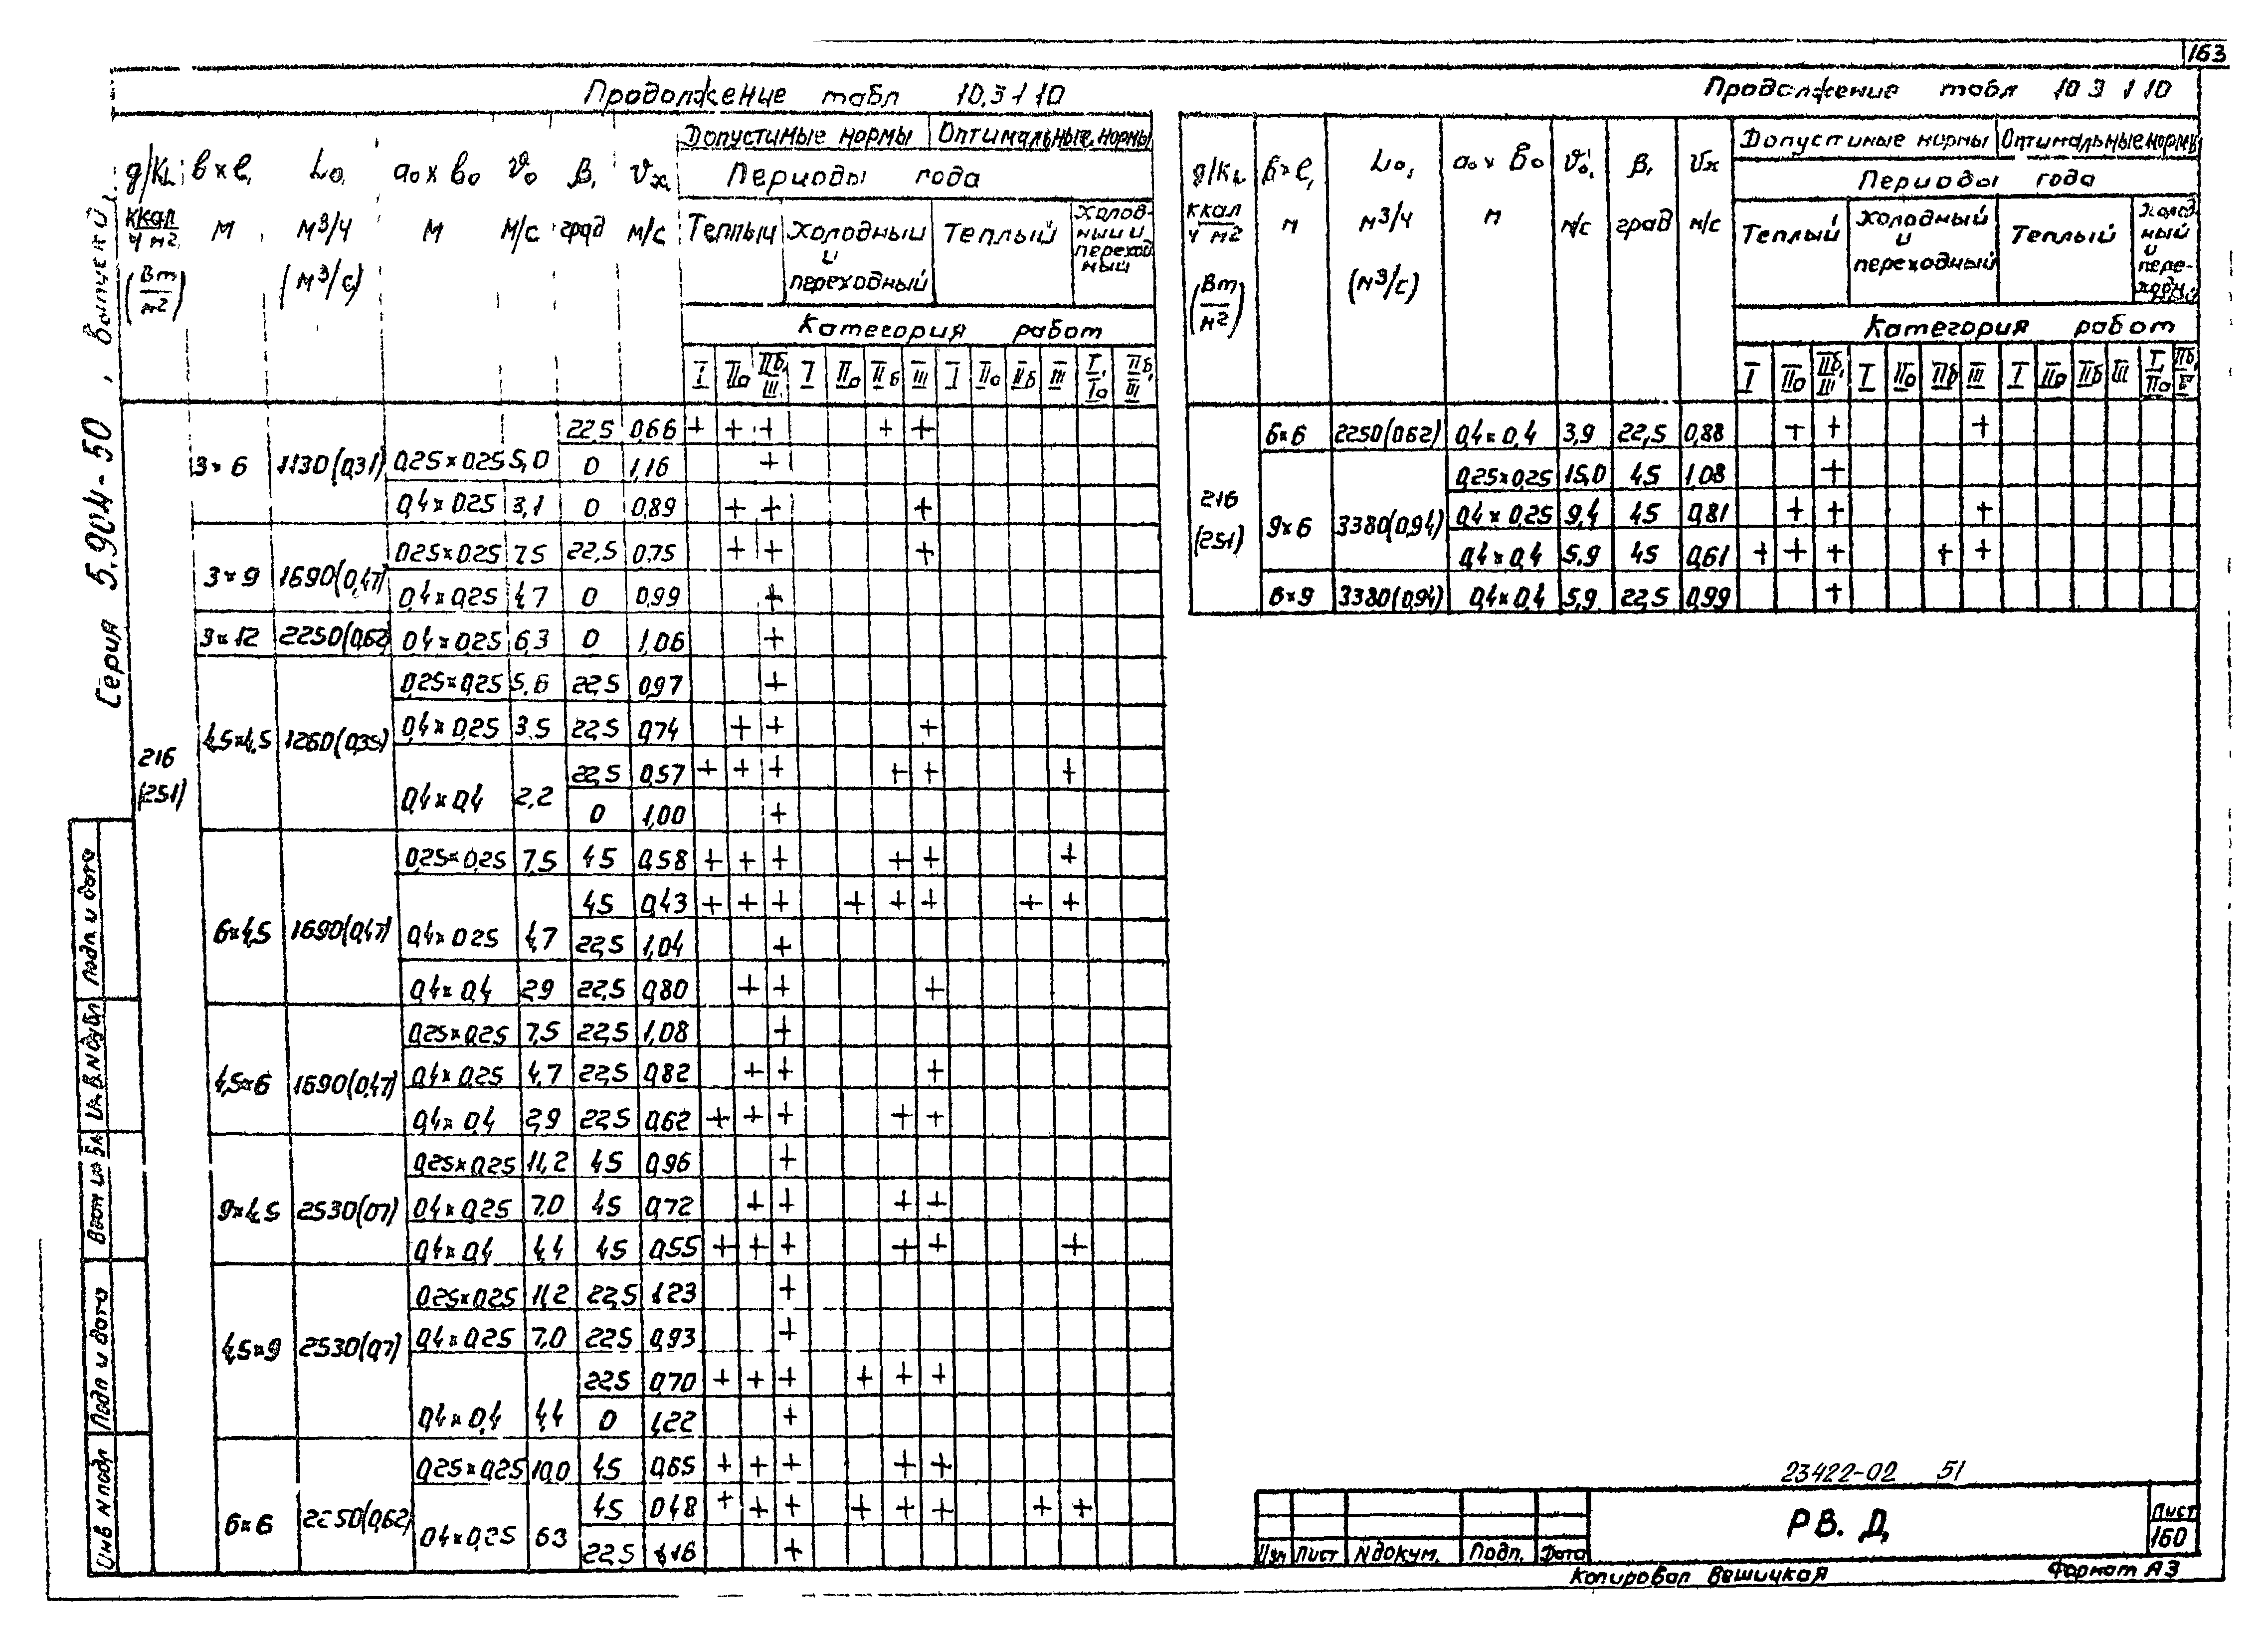 163
Продолжение табл 10.3 1 10
Допустимые нормы Оптимальные нормы
g/KL в×ℓ, L₀, a₀×в₀ v₀ β, vₓ, Периоды года
ккал/ч м² м м³/ч м м/с град м/с Теплый Холодный и переходный Теплый Холодный и переходный
(Вт/м²) (м³/с)
Категория работ
I IIа IIб, III I IIа IIб III I IIа IIб III I, IIа IIб, III
216 (251)
3×6 1130(0,31) 0,25×0,25 5,0 22,5 0,66 + + + + +
0 1,16 +
0,4×0,25 3,1 0 0,89 + + +
3×9 1690(0,47) 0,25×0,25 7,5 22,5 0,75 + + +
0,4×0,25 4,7 0 0,99 +
3×12 2250(0,62) 0,4×0,25 6,3 0 1,06 +
4,5×4,5 1260(0,35) 0,25×0,25 5,6 22,5 0,97 +
0,4×0,25 3,5 22,5 0,74 + + +
0,4×0,4 2,2 22,5 0,57 + + + + + +
0 1,00 +
6×4,5 1690(0,47) 0,25×0,25 7,5 45 0,58 + + + + + +
0,4×0,25 4,7 45 0,43 + + + + + + + +
22,5 1,04 +
0,4×0,4 2,9 22,5 0,80 + + +
4,5×6 1690(0,47) 0,25×0,25 7,5 22,5 1,08 +
0,4×0,25 4,7 22,5 0,82 + + +
0,4×0,4 2,9 22,5 0,62 + + + + +
9×4,5 2530(0,7) 0,25×0,25 11,2 45 0,96 +
0,4×0,25 7,0 45 0,72 + + + +
0,4×0,4 4,4 45 0,55 + + + + + +
4,5×9 2530(0,7) 0,25×0,25 11,2 22,5 1,23 +
0,4×0,25 7,0 22,5 0,93 +
0,4×0,4 4,4 22,5 0,70 + + + + + +
0 1,22 +
6×6 2250(0,62) 0,25×0,25 10,0 45 0,65 + + + + +
0,4×0,25 6,3 45 0,48 + + + + + + + +
22,5 1,16 +
Продолжение табл 10 3 1 10
Допустимые нормы Оптимальные нормы
g/KL в×ℓ, L₀, a₀×в₀ v₀, β, vₓ Периоды года
ккал/ч м² м м³/ч м м/с град м/с Теплый Холодный и переходный Теплый Холодный и переходн.
(Вт/м²) (м³/с)
Категория работ
I IIа IIб, III I IIа IIб III I IIа IIб III I, IIа IIб, III
216 (251)
6×6 2250(0,62) 0,4×0,4 3,9 22,5 0,88 + + +
9×6 3380(0,94) 0,25×0,25 15,0 45 1,08 +
0,4×0,25 9,4 45 0,81 + + +
0,4×0,4 5,9 45 0,61 + + + + +
6×9 3380(0,94) 0,4×0,4 5,9 22,5 0,99 +
Серия 5.904-50, выпуск
Подп. и дата
Инв. N дубл
Взам инв
Подп и дата
Инв N подл
23422-02 51
РВ. Д
Лист
160
Изм Лист N докум. Подп. Дата
Копировал Вешицкая
Формат А3